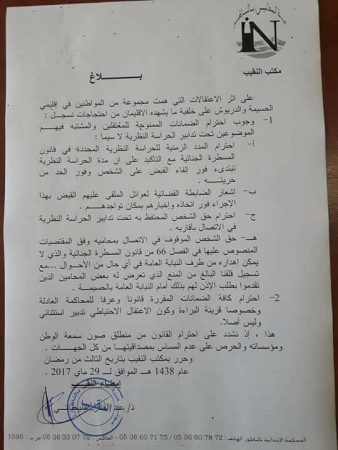 مكتب النقيب
بـــلاغ
على اثر الاعتقالات التي همت مجموعة من المواطنين في إقليمي
الحسيمة والدريوش على خلفية ما يشهده الاقليمان من احتجاجات نسجل :
1- وجوب احترام الضمانات الممنوحة للمعتقلين والمشتبه فيهم
الموضوعين تحت تدابير الحراسة النظرية لا سيما :
أ- احترام المدد الزمنية للحراسة النظرية المحددة في قانون
المسطرة الجنائية مع التأكيد على إن مدة الحراسة النظرية
تبتدىء فور القاء القبض على الشخص وفور الحد من
حريته.
ب- إشعار الضابطة القضائية لعوائل الملقى عليهم القبض بهذا
الإجراء فور اتخاذه وإخبارهم بمكان تواجدهم.
ج- احترام حق الشخص المحتفظ به تحت تدابير الحراسة النظرية
في الاتصال بأقاربه.
هـ- حق الشخص الموقوف في الاتصال بمحاميه وفق المقتضيات
المنصوص عليها في الفصل 66 من قانون المسطرة الجنائية والذي لا
يمكن إهداره من طرف النيابة العامة في أي حال من الأحوال ...مع
تسجيل قلقنا البالغ من المنع الذي تعرض له بعض المحامين الذين
تقدموا بطلب الإذن لهم بذلك أمام النيابة العامة بالحسيمة.
2- احترام كافة الضمانات المقررة قانونا وعرفا للمحاكمة العادلة
وخصوصا قرينة البراءة وكون الاعتقال الاحتياطي تدبير استثنائي
وليس أصلا.
هذا ، إذ نشدد على احترام القانون من منطلق صون سمعة الوطن
ومؤسساته والحرص على عدم المساس بمصداقيتها من كل الجهات .
وحرر بمكتب النقيب بتاريخ الثالث من رمضان
عام 1438 هـ الموافق لـ 29 ماي 2017 .
إمضاء النقيب
المحكمة الابتدائية بالناظور الهاتف : 05 36 60 78 72 - 05 36 60 71 75 / الفاكس : 05 36 33 07 72 ص ب - 1595